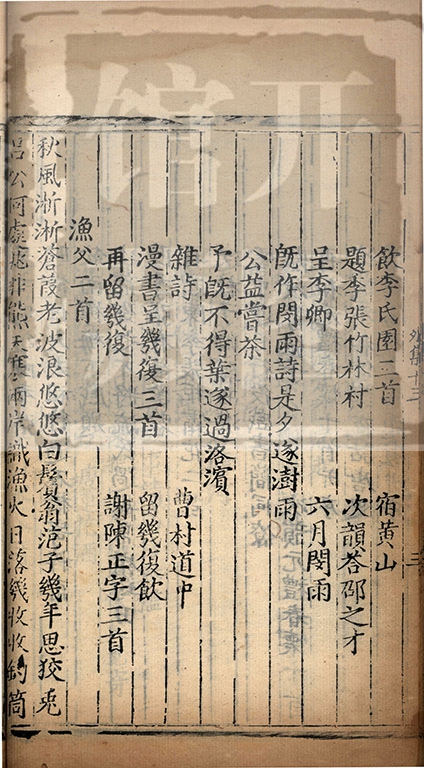 外集十三
三
飲李氏園三首　宿黄山
題李張竹林村　次韻荅邵之才
呈李卿　六月閔雨
既作閔雨詩是夕遂澍雨
公益嘗茶
予既不得葉遂過洛濱
雜詩　曹村道中
漫書呈幾復三首　留幾復飲
再留幾復　謝陳正字三首
漁父二首
秋風淅淅蒼葭老波浪悠悠白鬢翁范子幾年思狡兎
呂公何處兆非熊天寒兩岸識漁火日落幾收收釣筒
开
馆